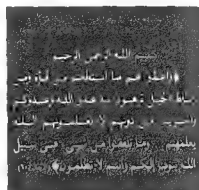 بسم الله الرحمن الرحيم
وأعدوا لهم ما استطعتم من قوة ومن
رباط الخيل ترهبون به عدو الله وعدوكم
وآخرين من دونهم لا تعلمونهم الله
يعلمهم وما تنفقوا من شيء في سبيل
الله يوف إليكم وأنتم لا تظلمون